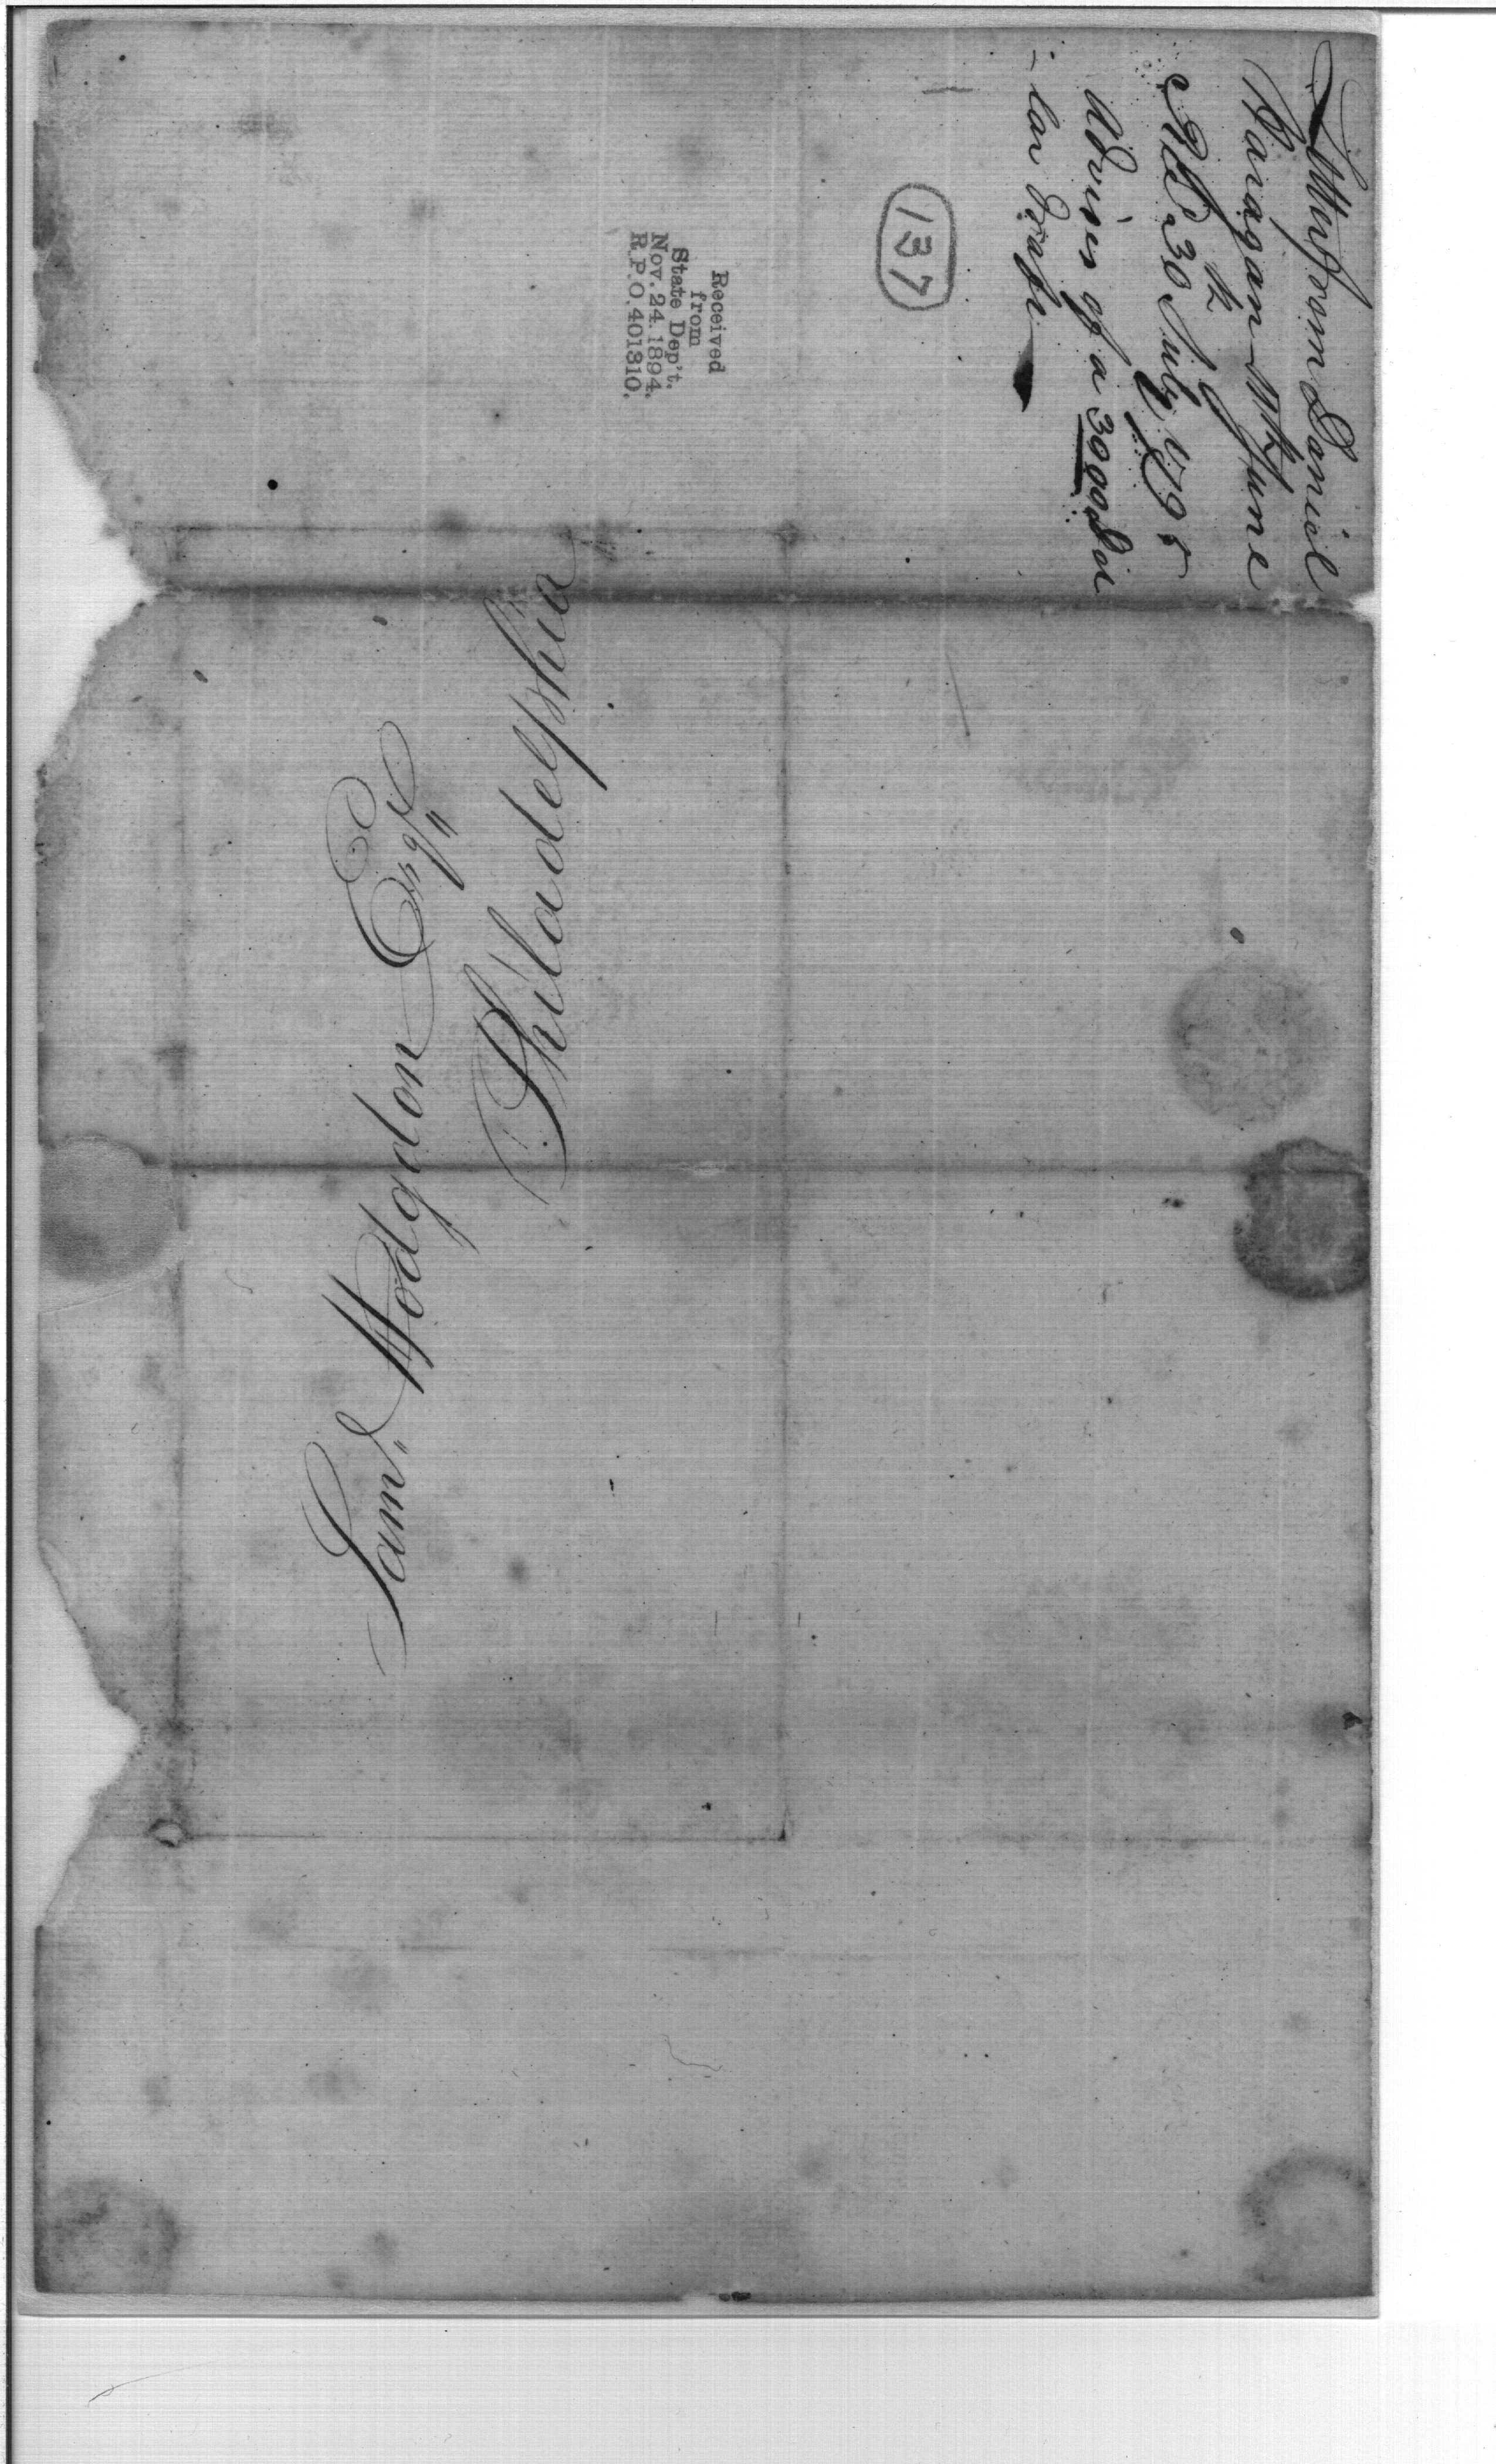 Letter from Daniel
Baragan 11th June
Recd 30th July 1795
Advises of a 3000 Dol
-lar Draft
137
Received
from
State Dep't.
Nov. 24. 1894.
R.P.O. 401310.
Saml. Hodgdon Esqr.
Philadelphia